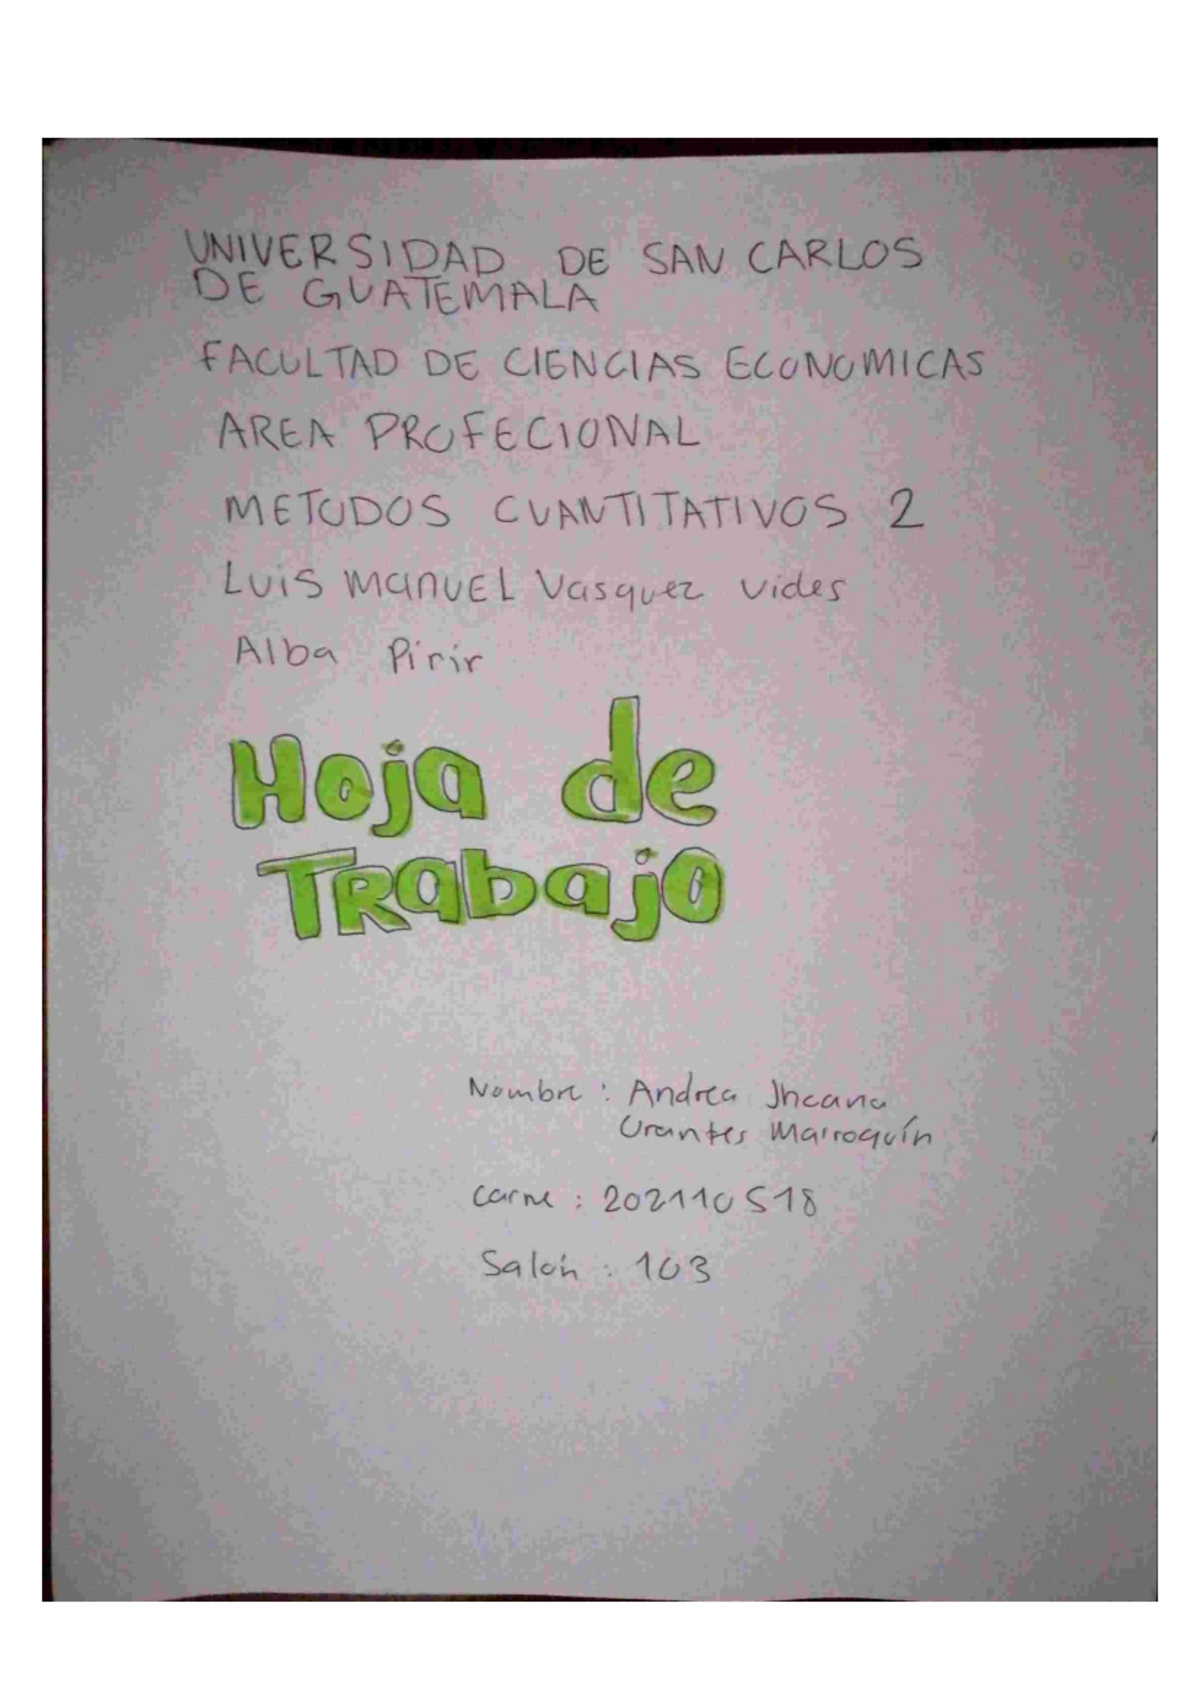 UNIVERSIDAD DE SAN CARLOS
DE GUATEMALA
FACULTAD DE CIENCIAS ECONOMICAS
AREA PROFECIONAL
METODOS CUANTITATIVOS 2
Luis Manuel Vasquez Vides
Alba Pirir
Hoja de
Trabajo
Nombre : Andrea Jheana
Orantes Marroquín
Carne : 202110518
Salón : 103